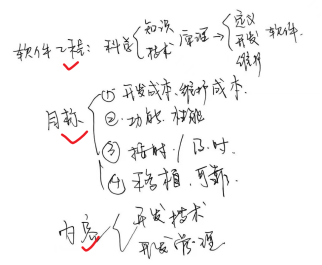 软件工程: 科学 { 知识 技术 原理 → { 定义 开发 维护 软件.
目标 { ① 开发成本、维护成本.
② 功能、性能
③ 按时 / 及时.
④ 移植, 可靠.
内容 { 开发技术
开发管理